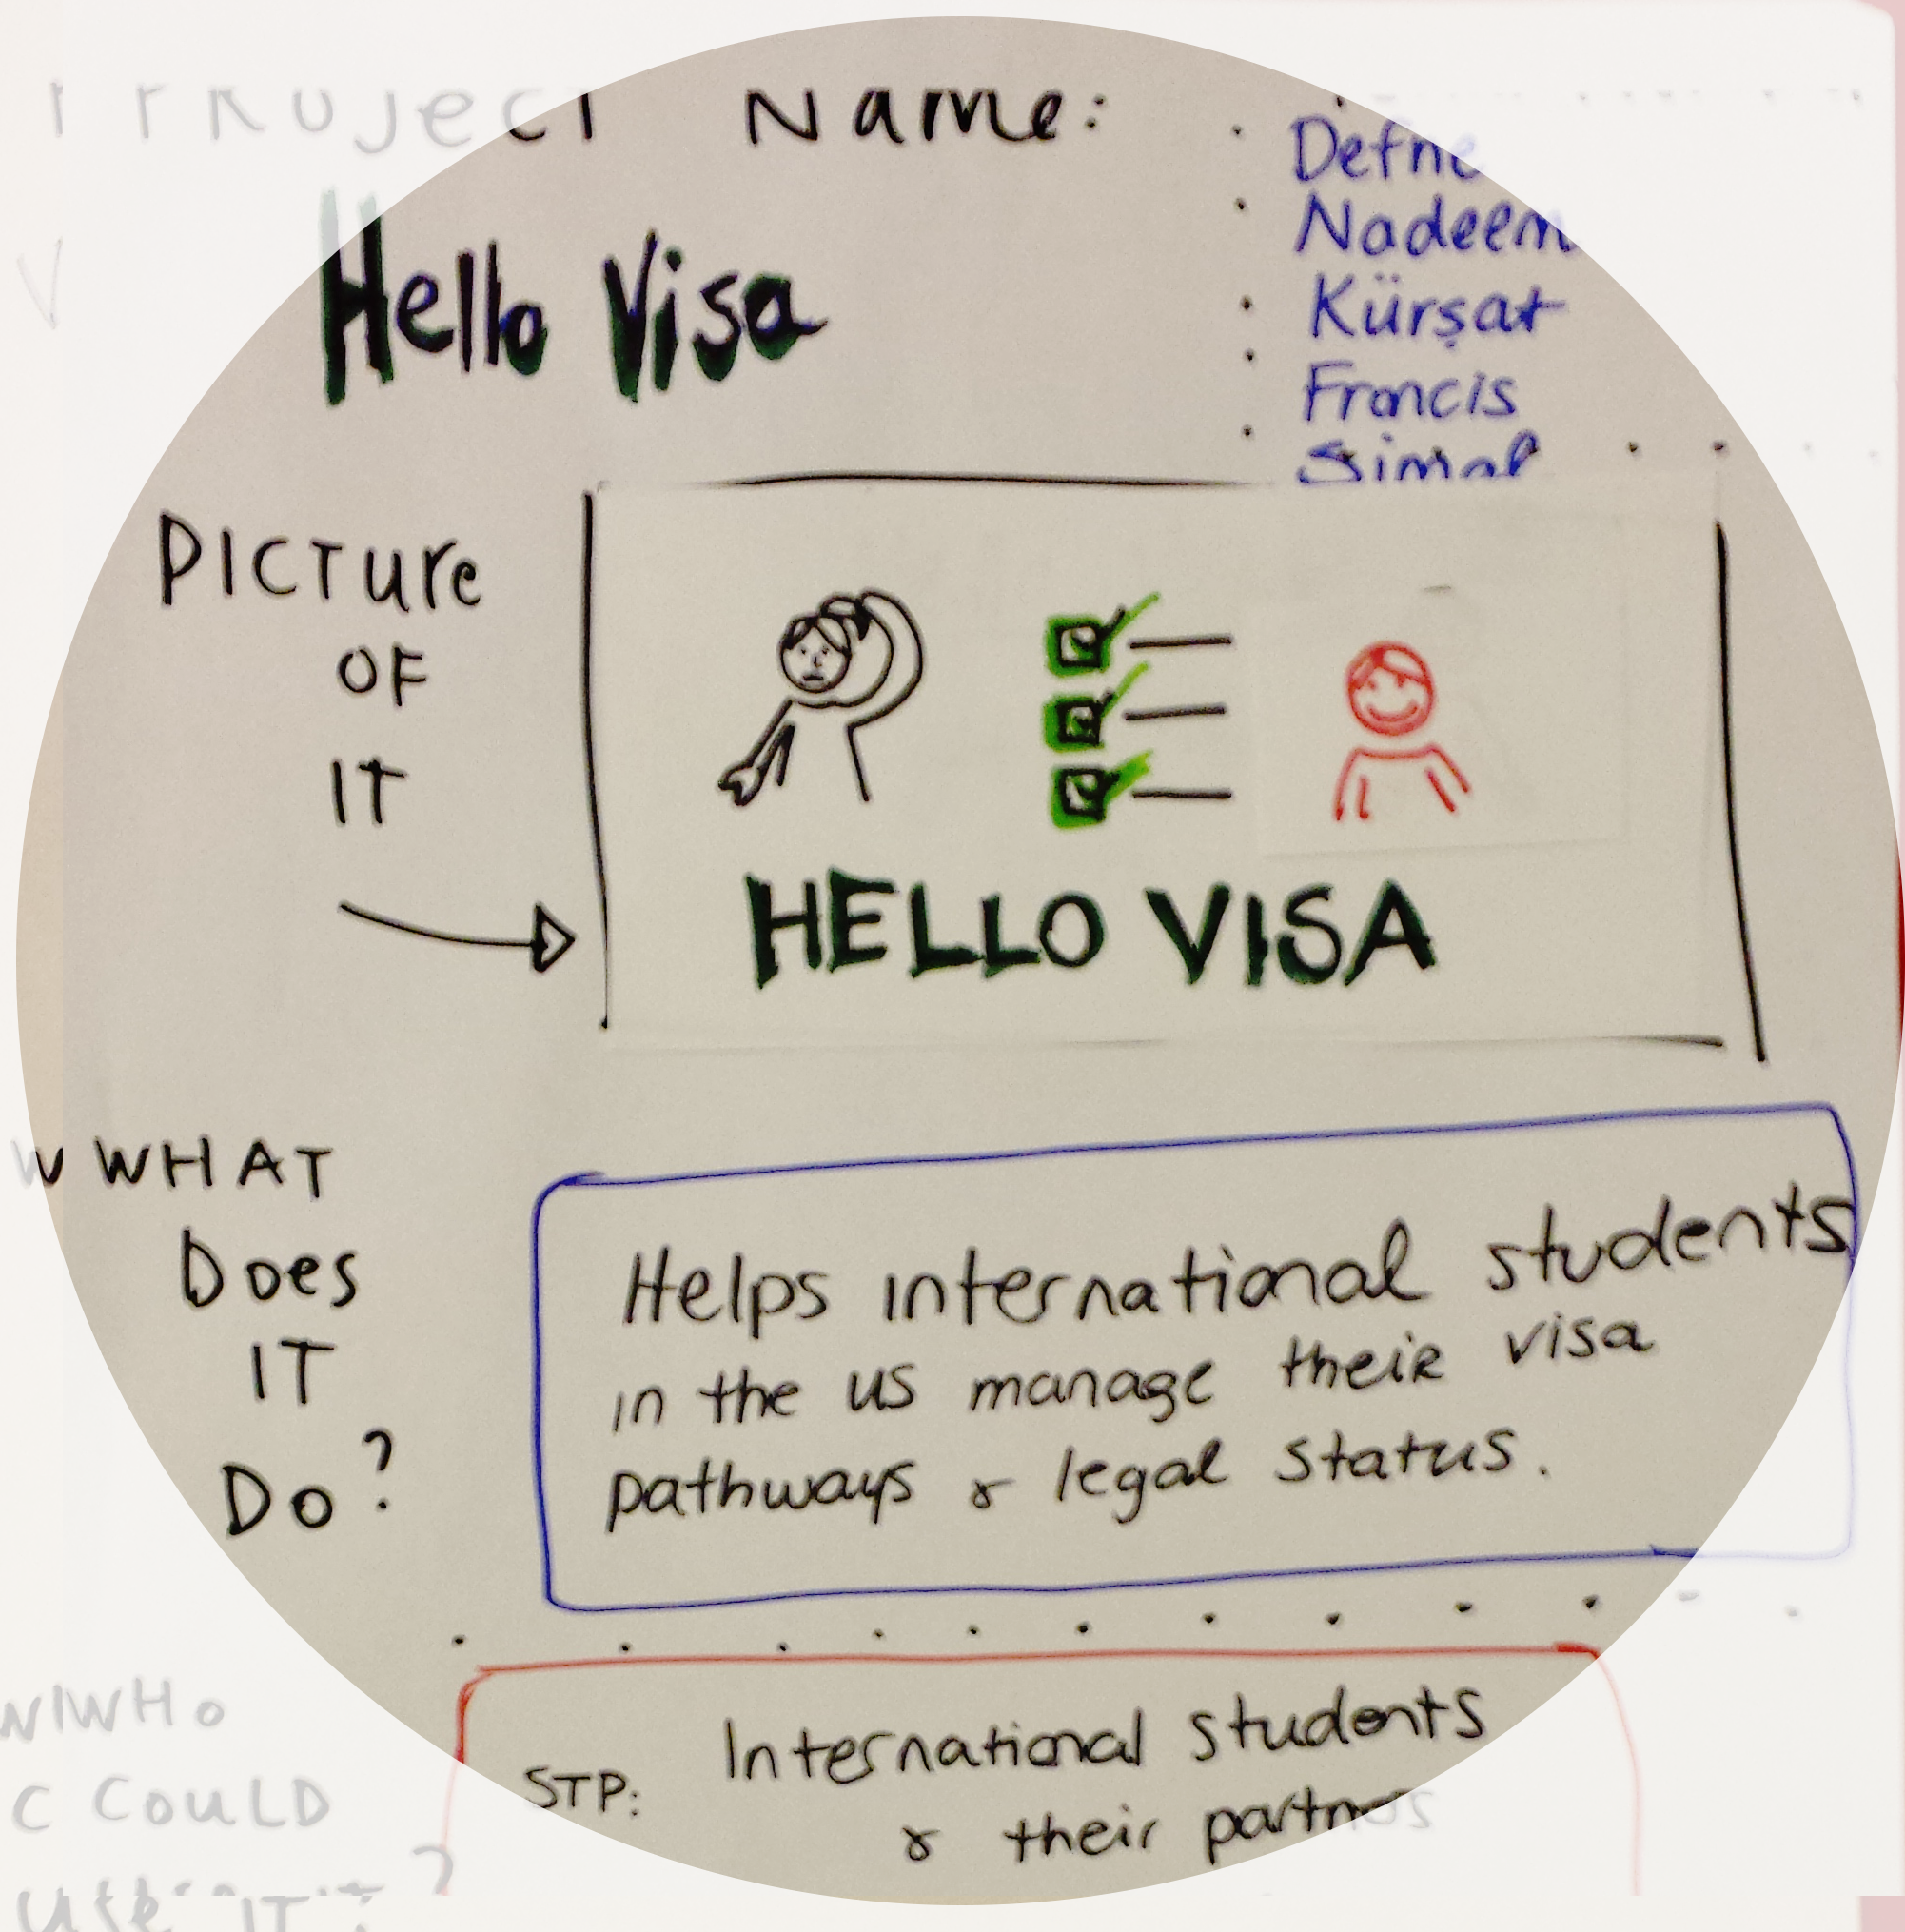 PROJECT Name:
Hello Visa
Defne
Nadeem
Kürşat
Francis
PICTure
OF
IT
HELLO VISA
WHAT
Does
IT
Do?
Helps international students
in the US manage their visa
pathways & legal status.
WHo
COULD
use IT?
STP: International students
& their partners